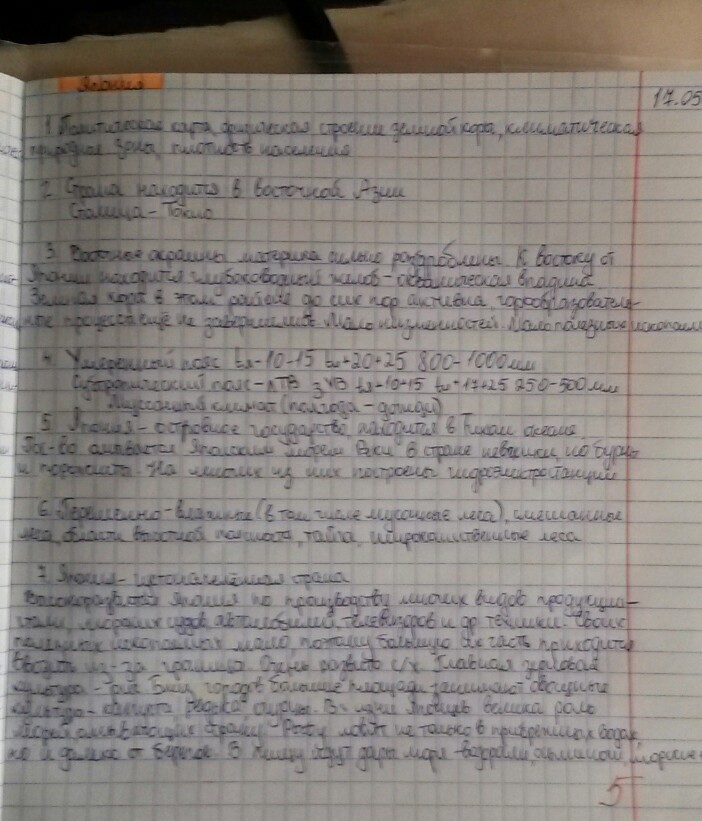 Япония
17.05
1 Политическая карта, физическая строение земной кора, климатическая
природная зоны, плотность населения
2 Страна находится в восточной Азии
Столица - Токио
3. Восточные окраины материка сильно раздроблены. К востоку от
Японии находится глубоководный желоб - океаническая впадина
Земная кора в этом районе до сих пор активна горообразователь-
ные процессы еще не завершились. Мало низменностей. Мало полезных ископаем
4. Умеренный пояс tя-10-15 tи+20+25 800-1000мм
Субтропический пояс - лТВ зУВ tя-10+15 tи+17+25 250-500мм
Муссонный климат (полгода - дожди)
5. Япония - островное государство, находится в Тихом океане
Гос-во омывается Японским морем Реки в стране невелики, но бурны
и порожисты. На многих из них построены гидроэлектростанции
6. Переменно-влажные (в том числе муссонные леса), смешанные
леса, области высотной поясности, тайга, широколиственные леса
7. Япония - страна
Япония по производству многих видов продукции-
морских судов автомобилей, телевизоров и др техники. Своих
полезных ископаемых мало, поэтому большую их часть приходится
ввозить из-за границы. Очень развито с/х Главная зерновая
культура - рис Близ городов большие площади занимают овощные
культуры - капуста редька огурцы. В жизни японцев велика роль
морей омывающие страну Рыбу ловят не только в прибрежных водах
но и далеко от берегов. В пищу идут дары моря - водоросли осьминоги, морские
5